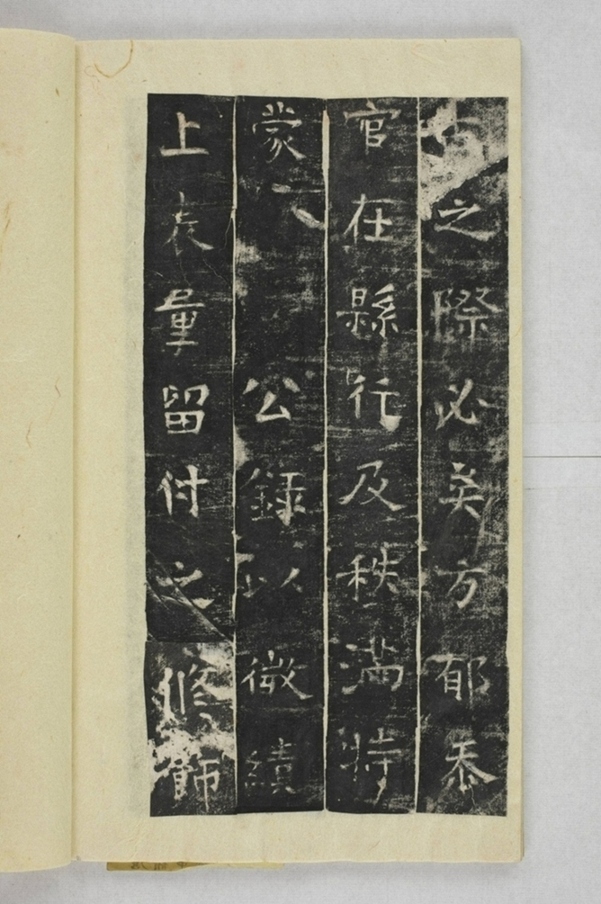 之際必矣方郁忝
官在縣行及秩滿特
蒙公錄以微績
上表量留付之修飾